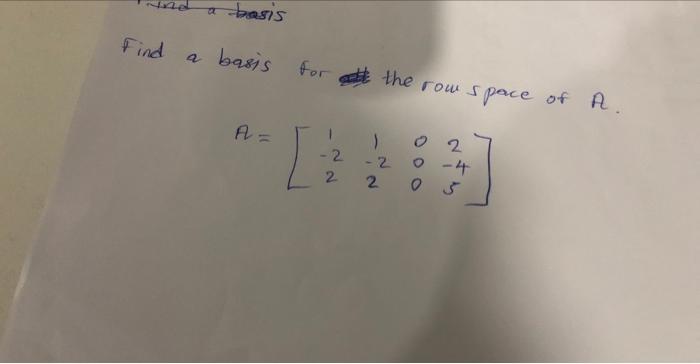 Find a basis
Find a basis for the row space of A.
A = [ 1 1 0 2
-2 -2 0 -4
2 2 0 5 ]